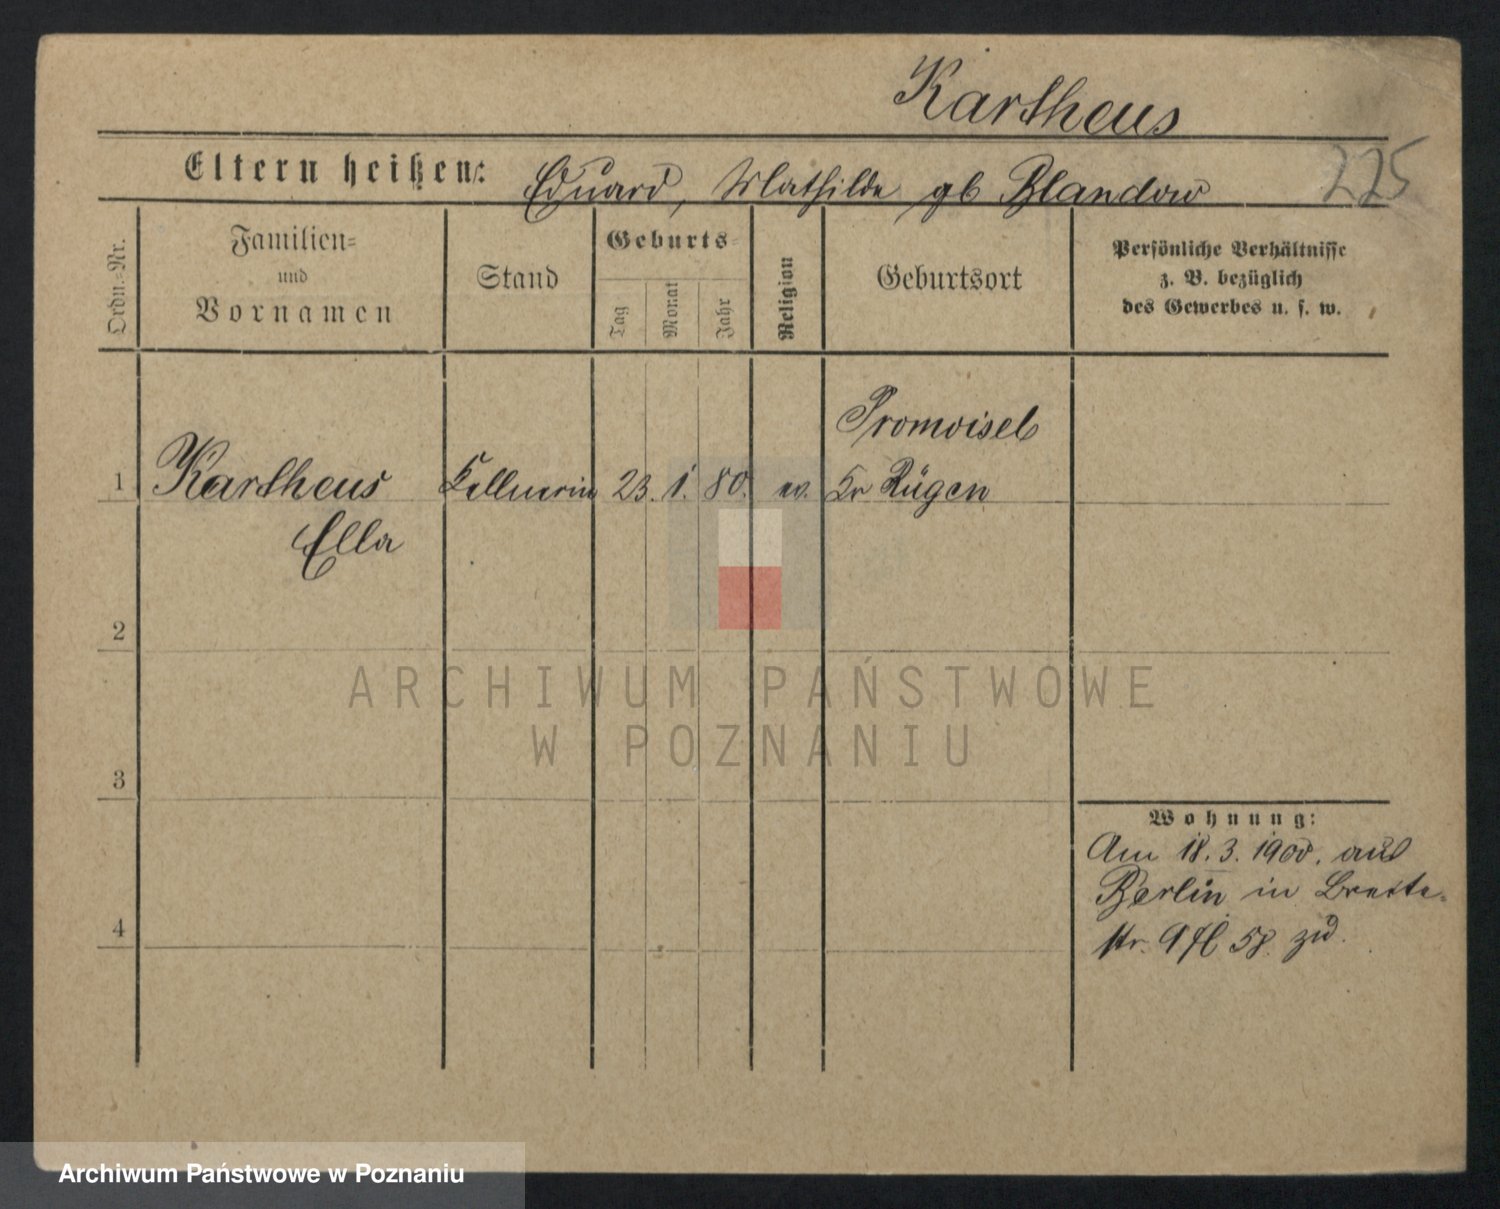 Kartheus
Eltern heißen: Eduard, Mathilde gb Blandow
225
Ordn.-Nr.
Familien-
und
Vornamen
Stand
Geburts-
Tag
Monat
Jahr
Religion
Geburtsort
Persönliche Verhältnisse
z. B. bezüglich
des Gewerbes u. s. w.
Promoisel
1 Kartheus Kellnerin 23. 1. 80. ev. Kr Rügen
Ella
2
ARCHIWUM PAŃSTWOWE
W POZNANIU
3
Wohnung:
Am 18. 3. 1900. aus
Berlin in Breite-
4
str. 9 58. zu
Archiwum Państwowe w Poznaniu